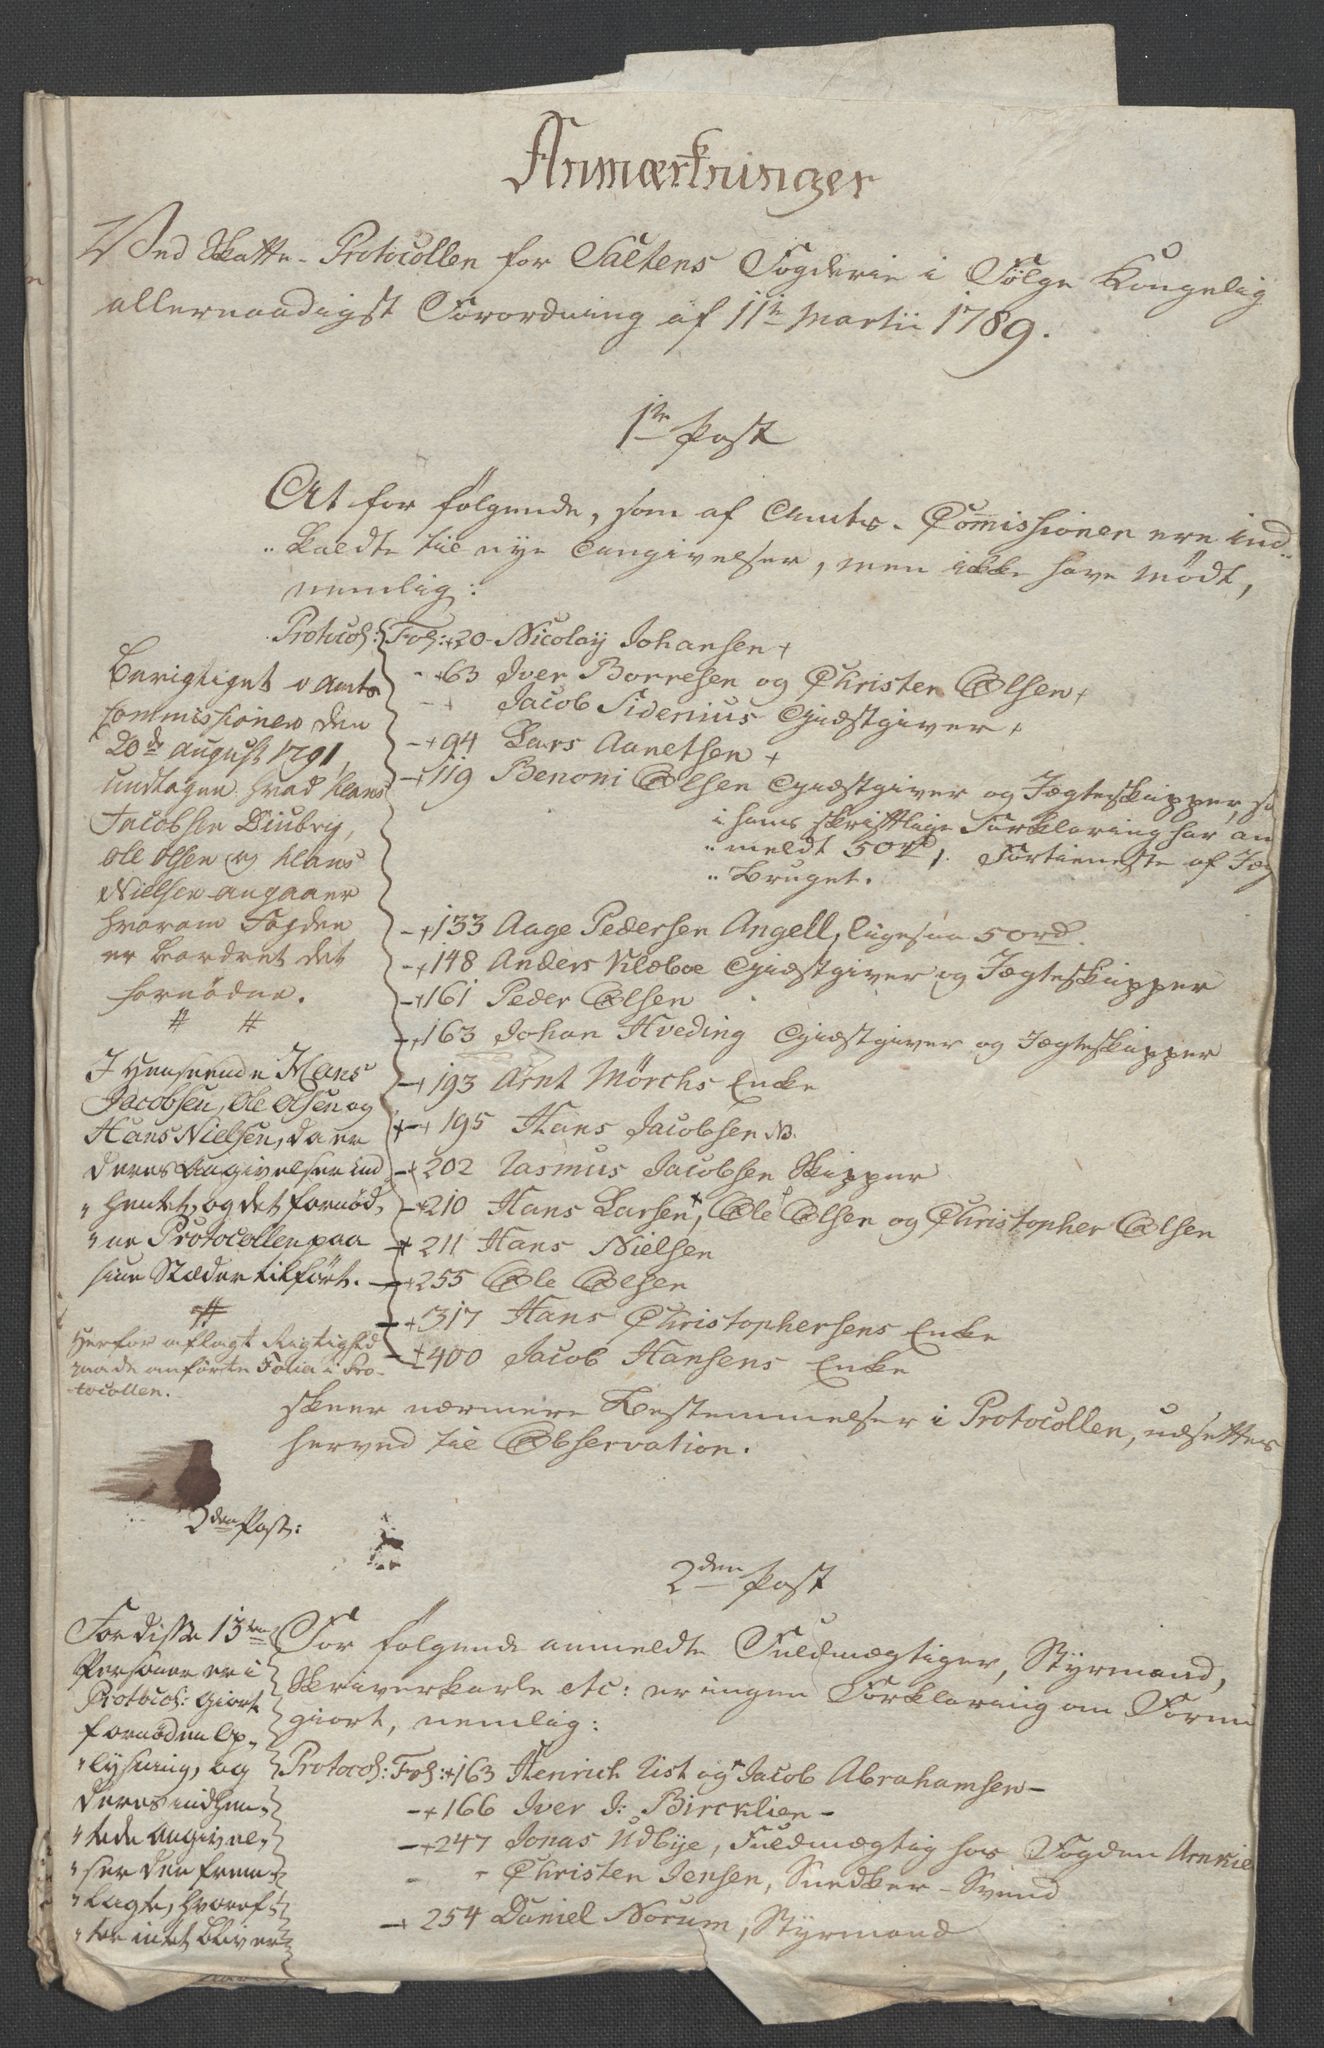 Anmærkninger
Ved Skatte-Protocollen for Saltens Fogderie i Følge Kongelig
allernaadigst Forordning af 11te Martii 1789.
1te Post
At for følgende, som af Amts-Comissionen ere ind„
„kaldte til nye Angivelser, men ikke have mødt,
nemlig:
Protocol: Fol: 20 Nicolay Johansen +
63 Iver Borresen og Christen Olsen +
Jacob Sidenius Giæstgiver +
94 Lars Aanetsen +
119 Benoni Olsen Giæstgiver og Jægteskipper, so
i hans skriftlige Forklaring har an
„meldt 50rd Fortieneste af Jæg
„Bruget.
133 Aage Pedersen Angell, ligesaa 50rd.
148 Anders Klæboe Giæstgiver og Jægteskipper
161 Peder Olsen
163 Johan Hveding Giæstgiver og Jægteskipper
193 Arnt Mörchs Enke
195 Hans Jacobsen NB.
202 Rasmus Jacobsen Skipper
210 Hans Larsen, Ole Olsen og Christopher Olsen
211 Hans Nielsen
255 Ole Olsen
317 Hans Christophersens Enke
400 Jacob Hansens Enke
skeer nærmere Bestemmelser i Protocollen, udsettes
herved til Observation.
Berigtiget v Amts
Commissionen den
20de August 1791,
undtagen hvad Hans
Jacobsen
Ole Olsen og Hans
Nielsen angaaer
hvorom Fogden
er beordret det
fornødne.
# #
I Henseende Hans
Jacobsen, Ole Olsen og
Hans Nielsen, da er
deres Angivelser ind
„hentet, og det fornød„
„ne Protocollen paa
sine Stæder tilført.
#
Herfor aflagt Rigtighed
paa de anførte Folia i Pro-
tocollen.
2den Post:
2den Post
For følgende anmeldte Fuldmægtiger, Styrmænd,
Skriverkarle etc: er ingen Forklaring om Formu
giort, nemlig:
Protocol: Fol: 163 Henrich List og Jacob Abrahamsen-
166 Iver J: Bircklien-
247 Jonas Udbye, Fuldmægtig hos Fogden Arnkie
Christen Jensen, Snedker-Svend
254 Daniel Norum, Styrmand
For disse 13ten
Personer er i
Protocol: giort
fornøden Op„
„lysning, og
deres indhen„
„tede Angivel„
„ser der frem„
„lagte, hvoref„
„ter intet bliver